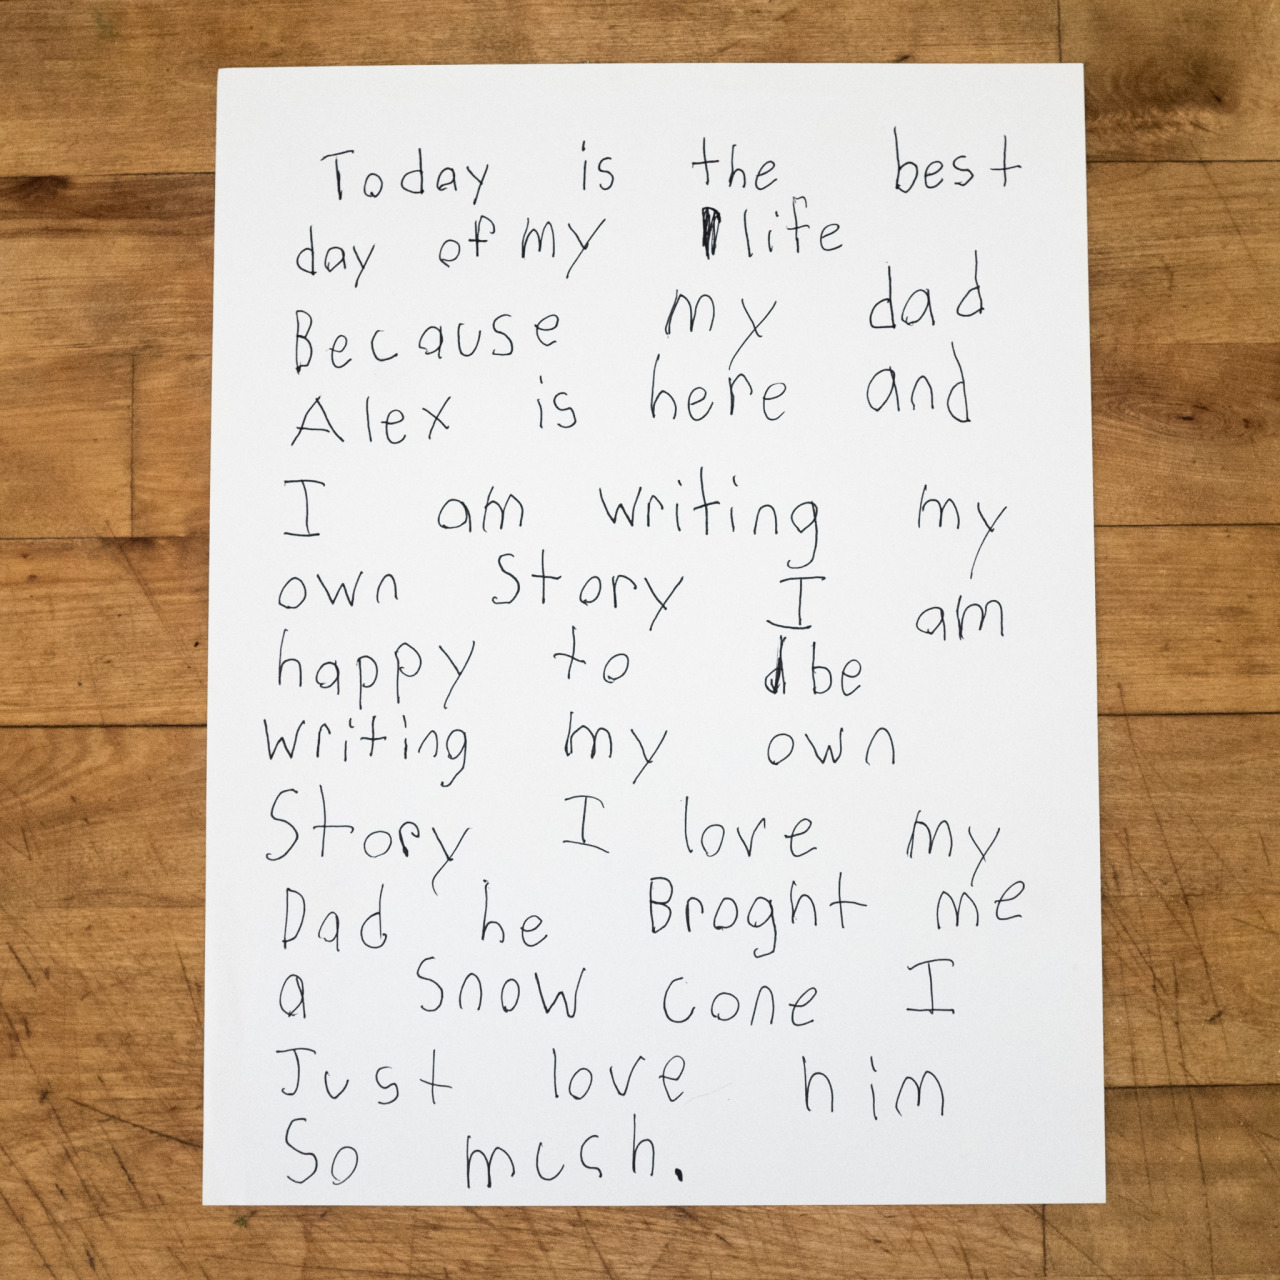 Today is the best
day of my life
Because my dad
Alex is here and
I am writing my
own Story I am
happy to be
writing my own
Story I love my
Dad he Broght me
a Snow cone I
Just love him
So much.